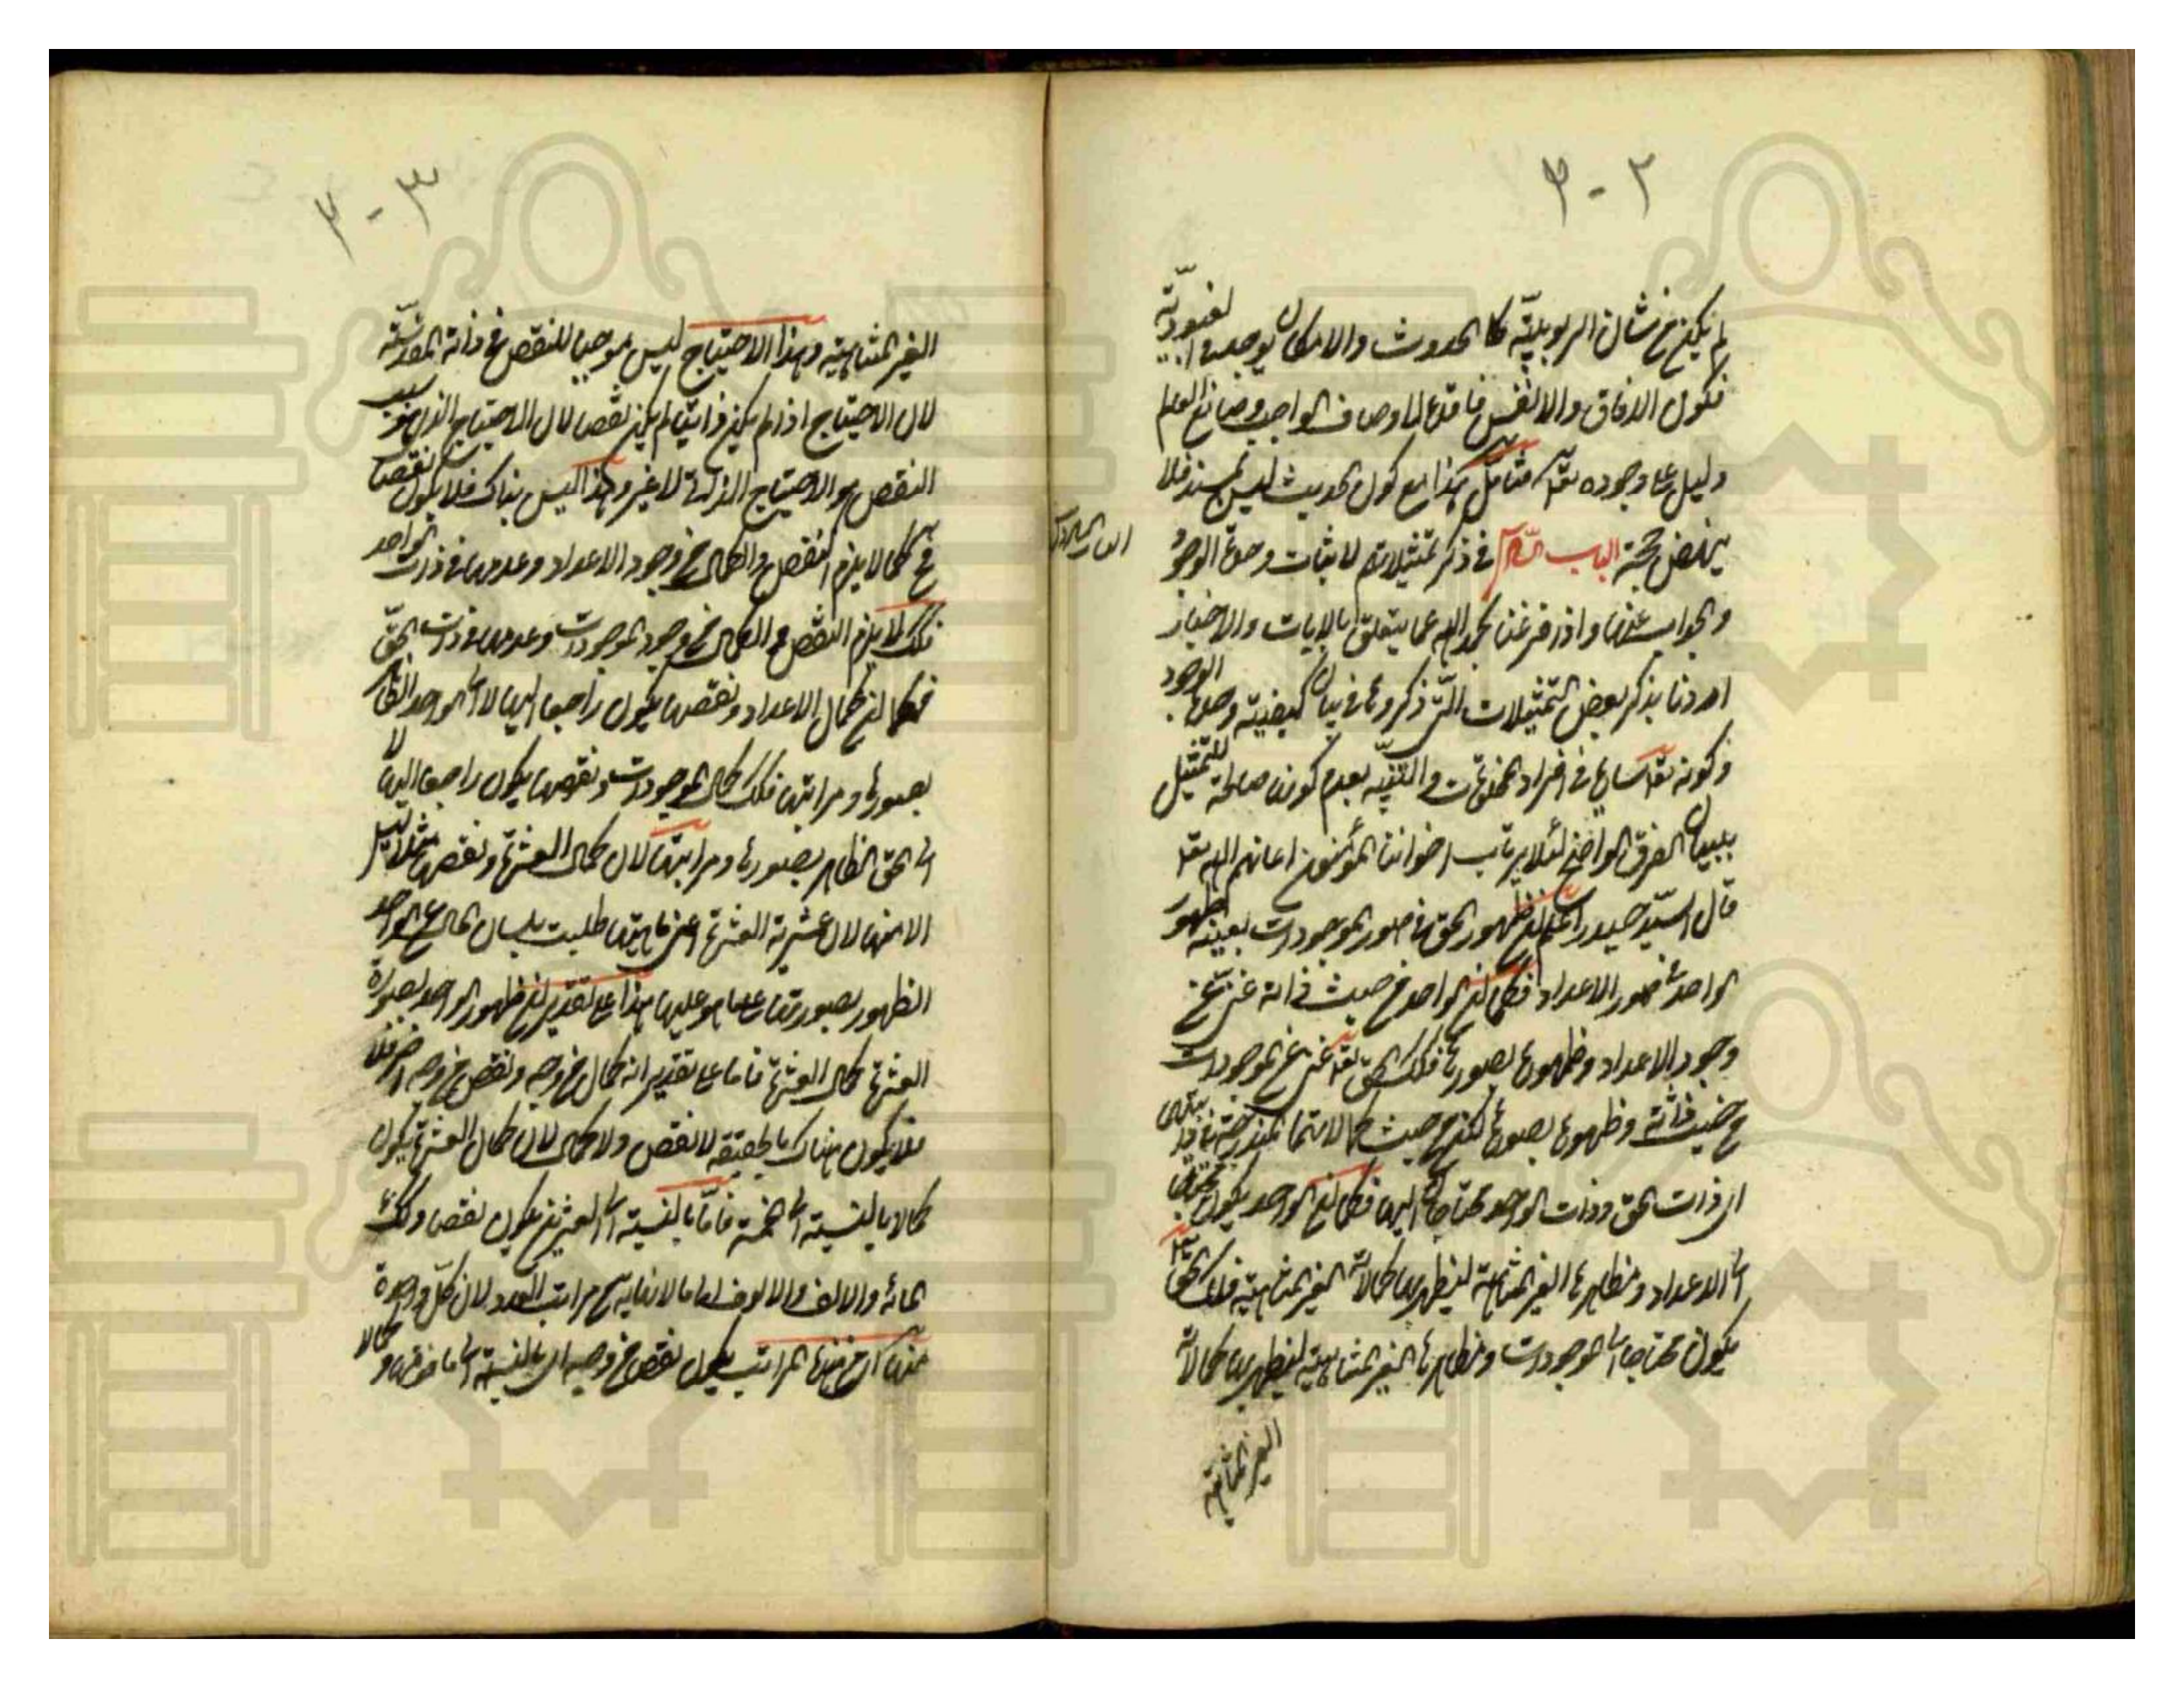 ٢-٣
لم يكن من شان الربوبيّة كالحدوث والامكان يوجد في العبوديّة
فيكون الافاق والانفس فاقدة لاوصاف الواجب وصانع العالم
دليل على وجوده تعالى فتامّل هذا مع كون الحديث ليس بمسند فلا
ينهض حجة الباب الثالث في ذكر تمثيلاتهم لاثبات وحدة الوجود
الباب الثالث
والجواب عنها واذ فرغنا بحمد الله عما يتعلق بالايات والاخبار
اردنا بذكر بعض التمثيلات التي ذكروها في بيان كيفيته وحدة الوجود
وكونه تعالى ساريا في افراد المخلوقات والتنبيه بعدم كونها صالحة للتمثيل
ببيان الفرق الواضح لئلا يرتاب اخواننا المؤمنون اعانهم الله تعالى
قال السيّد حيدر اعلم ان ظهور الحق في صور الموجودات بعينه كظهور
الواحد في صور الاعداد فكما ان الواحد من حيث ذاته غني عن
وجود الاعداد وظهوره بصورها فكذلك الحق تعالى غني عن الموجودات
من حيث ذاته وظهوره بصورها لكن من حيث كمالاتها المندرجة
اي ذات الحق وذات الواحد محتاجان اليها فكما ان الواحد يكون محتاجا
الى الاعداد ومظاهرها الغير المتناهية ليظهر بها كمالاته الغير المتناهية فكذلك الحق تعالى
يكون محتاجا الى الموجودات ومظاهرها الغير المتناهية ليظهر بها كمالاته
الغير المتناهية
٣-٣
الغير المتناهية وهذا الاحتياج ليس موجبا للنقص في ذاته المقدّسة
لان الاحتياج اذا لم يكن ذاتيا لم يكن نقصا لان الاحتياج الذي هو سبب
النقص هو الاحتياج الذاتي لا غير وهذا ليس بذاك فلا يكون نقصا
فح كما لا يلزم النقص والكمال من وجود الاعداد وعدمها في ذات الواحد
فكذلك لا يلزم النقص والكمال من وجود الموجودات وعدمها في ذات الحقّ
فكما ان كمال الاعداد ونقصها يكون راجعا اليها لا الى الواحد الظاهر
بصورها ومراتبها فكذلك كمال الموجودات ونقصها يكون راجعا اليها لا
الى الحق الظاهر بصورها ومراتبها لان كمال العشرة ونقصها مثلا ليس
الا منها لان عشرية العشرة اعني ماهيتها طلبت بلسان الحال من الواحد
الظهور بصورتها على ما هو عليها هذا على تقدير ان ظهور الواحد بصورة
العشرة كمال العشرة فاما على تقدير انه كمال من وجه ونقص من وجه اخر فلا
فلا يكون هناك بالحقيقة لا نقص ولا كمال لان كمال العشرة يكون
كمالا بالنسبة الى الخمسة فامّا بالنسبة الى العشرين يكون نقصا وكذلك
المائة والالف والالوف الى ما لا نهاية من مراتب العدد لان كلّ واحدة
منها اي من هذه المراتب يكون نقص من وجه اي بالنسبة الى ما فوقها و كمالا